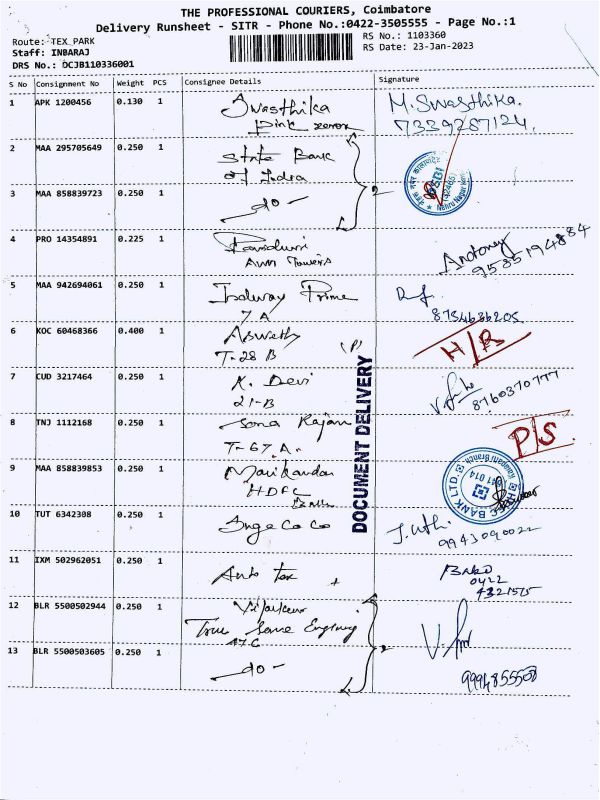 THE PROFESSIONAL COURIERS, Coimbatore
Delivery Runsheet - SITR - Phone No.:0422-3505555 - Page No.:1
Route: TEX_PARK
Staff: INBARAJ
DRS No.: DCJB110336001
RS No.: 1103360
RS Date: 23-Jan-2023
S No Consignment No Weight PCS Consignee Details Signature
1 APK 1200456 0.130 1 Swasthika M. Swasthika.
Pink 7339287124.
2 MAA 295705649 0.250 1 State Bank
of India
3 MAA 858839723 0.250 1 -do- 2
SBI
Nehru Nagar
4 PRO 14354891 0.225 1
Towers
Antoney
9585194884
5 MAA 942694061 0.250 1 Prime
7 A
8754636205
6 KOC 60468366 0.400 1 Asweth (P) H/R
T-28 B
7 CUD 3217464 0.250 1 K. Devi
21-B 8760370777
8 TNJ 1112168 0.250 1 Sona Rajan P/S
T-67 A.
DOCUMENT DELIVERY
9 MAA 858839853 0.250 1 Manikandan
HDFC
Bank
HDFC BANK LTD.
641 014
Kalapatti Branch
10 TUT 6342308 0.250 1 Inge Co Co J. Uthi
9943090022
11 IXM 502962051 0.250 1 Auto Tex
0422
4321515
12 BLR 5500502944 0.250 1
True Engineering
13 BLR 5500503605 0.250 1 -do- 2
9994855508